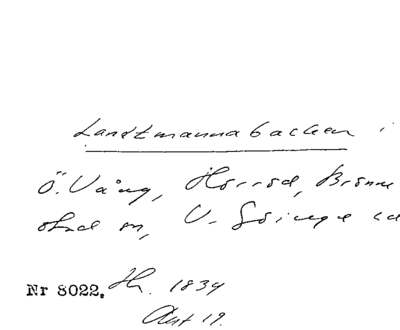 Landtmannabacken i
Ö. Vång, Hörröd, Brönne
stad sn, V. Göinge
Nr 8022. Hh. 1834
Akt 19.